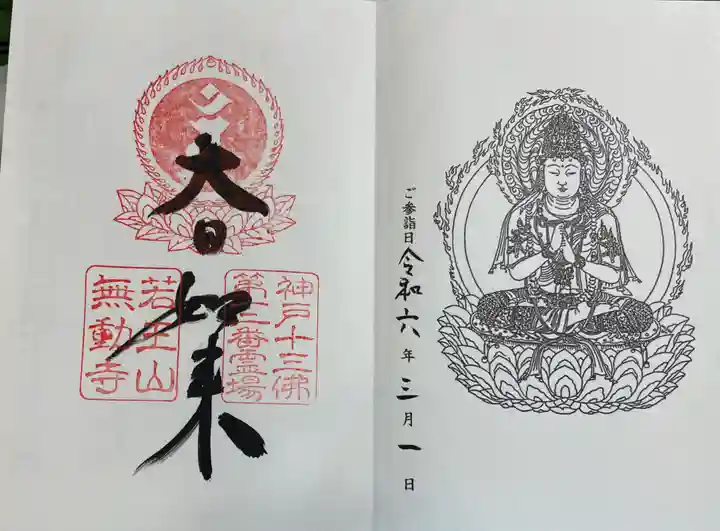 大日
如来
神戸十三佛
第
番霊場
若王山
無動寺
ご参詣日 令和六年三月一日